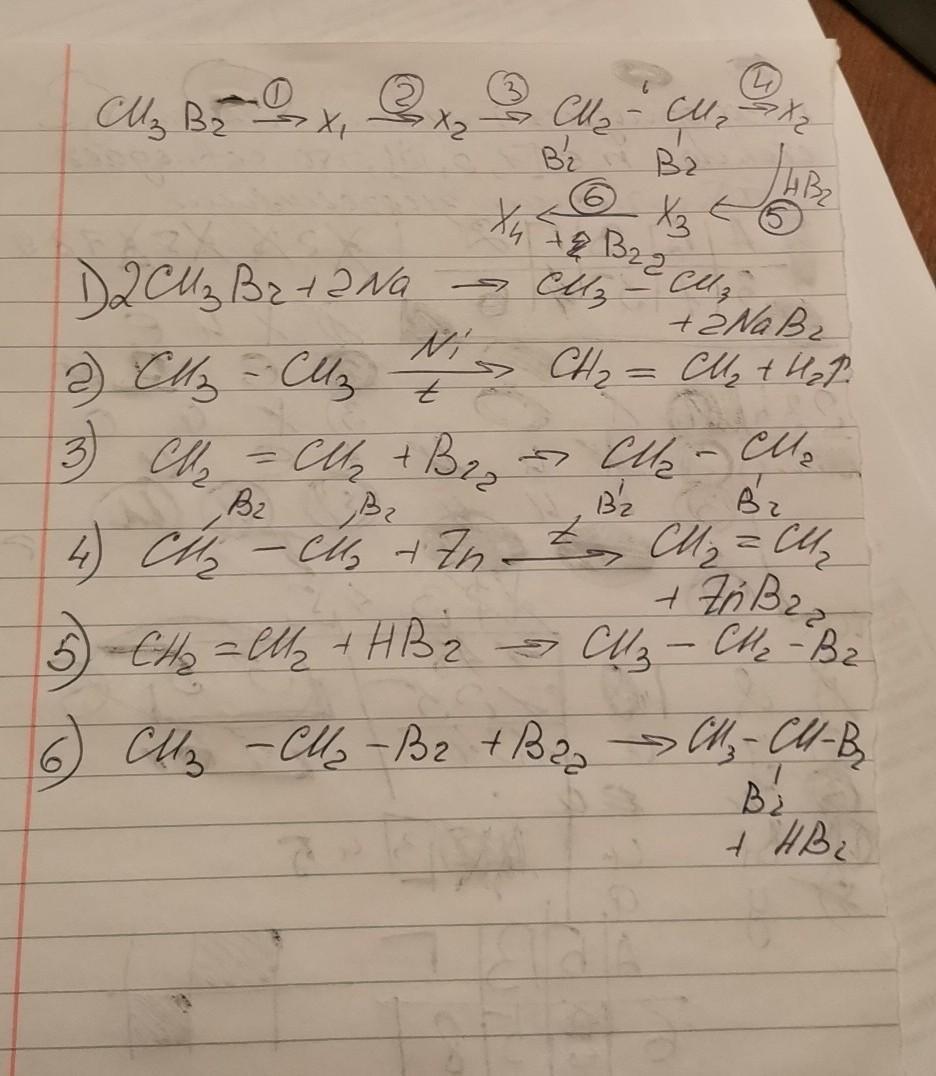 CH₃Br —①→ X₁ ②→ X₂ ③→ CH₂ - CH₂ ④→ X₂
Br Br
HBr
X₄ ←⑥ X₃ ← ⑤
+ Br₂
1) 2CH₃Br + 2Na → CH₃ - CH₃
+ 2NaBr
2) CH₃ - CH₃ Ni→ t CH₂ = CH₂ + H₂↑
3) CH₂ = CH₂ + Br₂ → CH₂ - CH₂
Br Br
Br Br
4) CH₂ - CH₂ + Zn t→ CH₂ = CH₂
+ ZnBr₂
5) CH₂ = CH₂ + HBr → CH₃ - CH₂ - Br
6) CH₃ - CH₂ - Br + Br₂ → CH₃ - CH - Br
Br
+ HBr